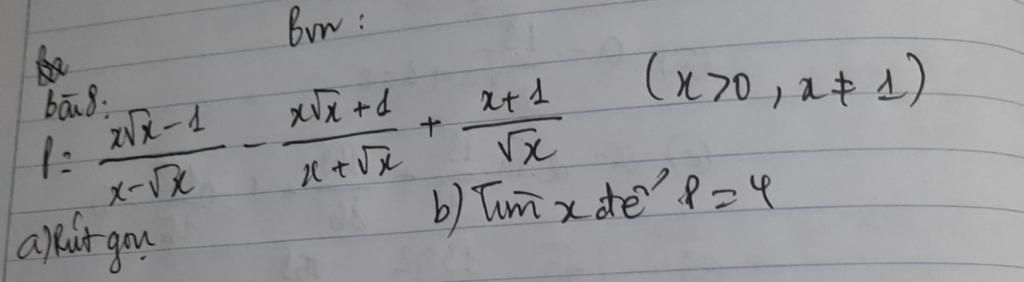 Bvn :
bài 8:
P = (x√x - 1)/(x - √x) - (x√x + 1)/(x + √x) + (x + 1)/√x (x > 0, x ≠ 1)
a) Rút gọn
b) Tìm x để P = 4